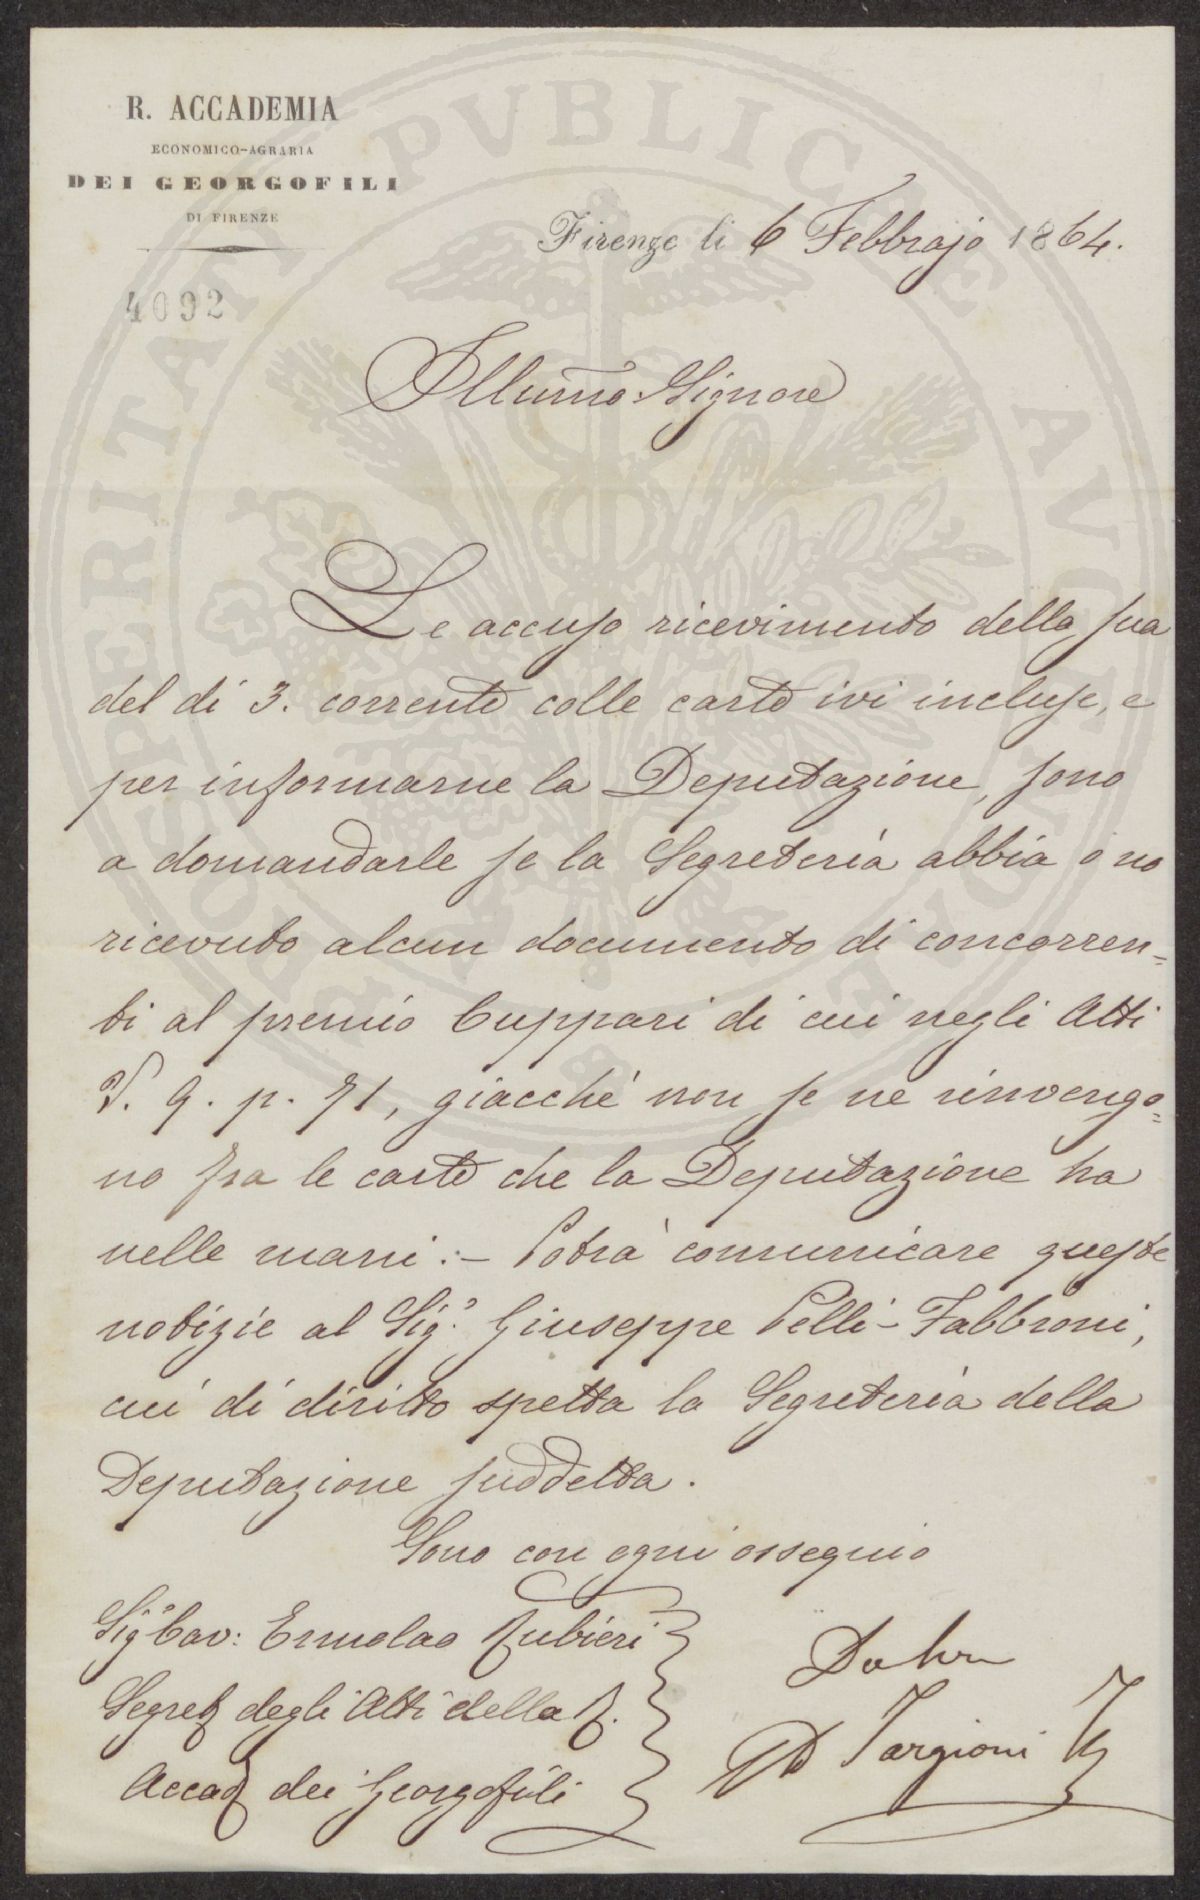 R. ACCADEMIA
ECONOMICO-AGRARIA
DEI GEORGOFILI
DI FIRENZE
Firenze li 6 Febbrajo 1864.
4092
Illumo Signore
Le accuso ricevimento della sua
del dì 3. corrente colle carte ivi incluse, e
per informarne la Deputazione, sono
a domandarle se la Segreteria abbia o no
ricevuto alcun documento di concorren=
ti al premio Cuppari di cui negli Atti
V. 9. p. 71, giacchè non se ne rinvengo=
no fra le carte che la Deputazione ha
nelle mani.- Potrà comunicare queste
notizie al Sigr. Giuseppe Pelli-Fabbroni,
cui di diritto spetta la Segreteria della
Deputazione suddetta.
Sono con ogni ossequio
Sigr Cav: Ermolao Rubieri
Segret degli Atti della R.
Accad dei Georgofili
Targioni
PROSPERITATI PUBLICAE AUGENDAE